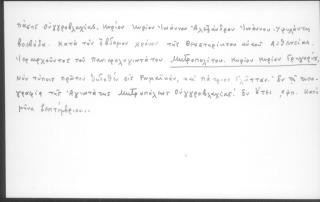 πάσης Οὐγγροβλαχίας. Κυρίου Κυρίου Ἰωάννου Ἀλεξάνδρου Ἰωάννου Ὑψηλάντη
βοεβόδα. Κατὰ τὸν ἕβδομον χρόνον τῆς Θεοστηρίκτου αὐτοῦ Αὐθεντείας.
Ἱεραρχοῦντος τοῦ Πανιερολογιωτάτου Μητροπολίτου. Κυρίου Κυρίου Γρηγορίου,
Νῦν τύποις πρῶτον ἐκδοθεῖσα εἰς Ῥωμαϊκήν, καὶ πάτριον γλῶτταν. Ἐν τῇ τυπο-
γραφίᾳ τῆς Ἁγιωτάτης Μητροπόλεως Οὐγγροβλαχίας. Ἐν ἔτει Κατὰ
μῆνα Σεπτέμβριον.